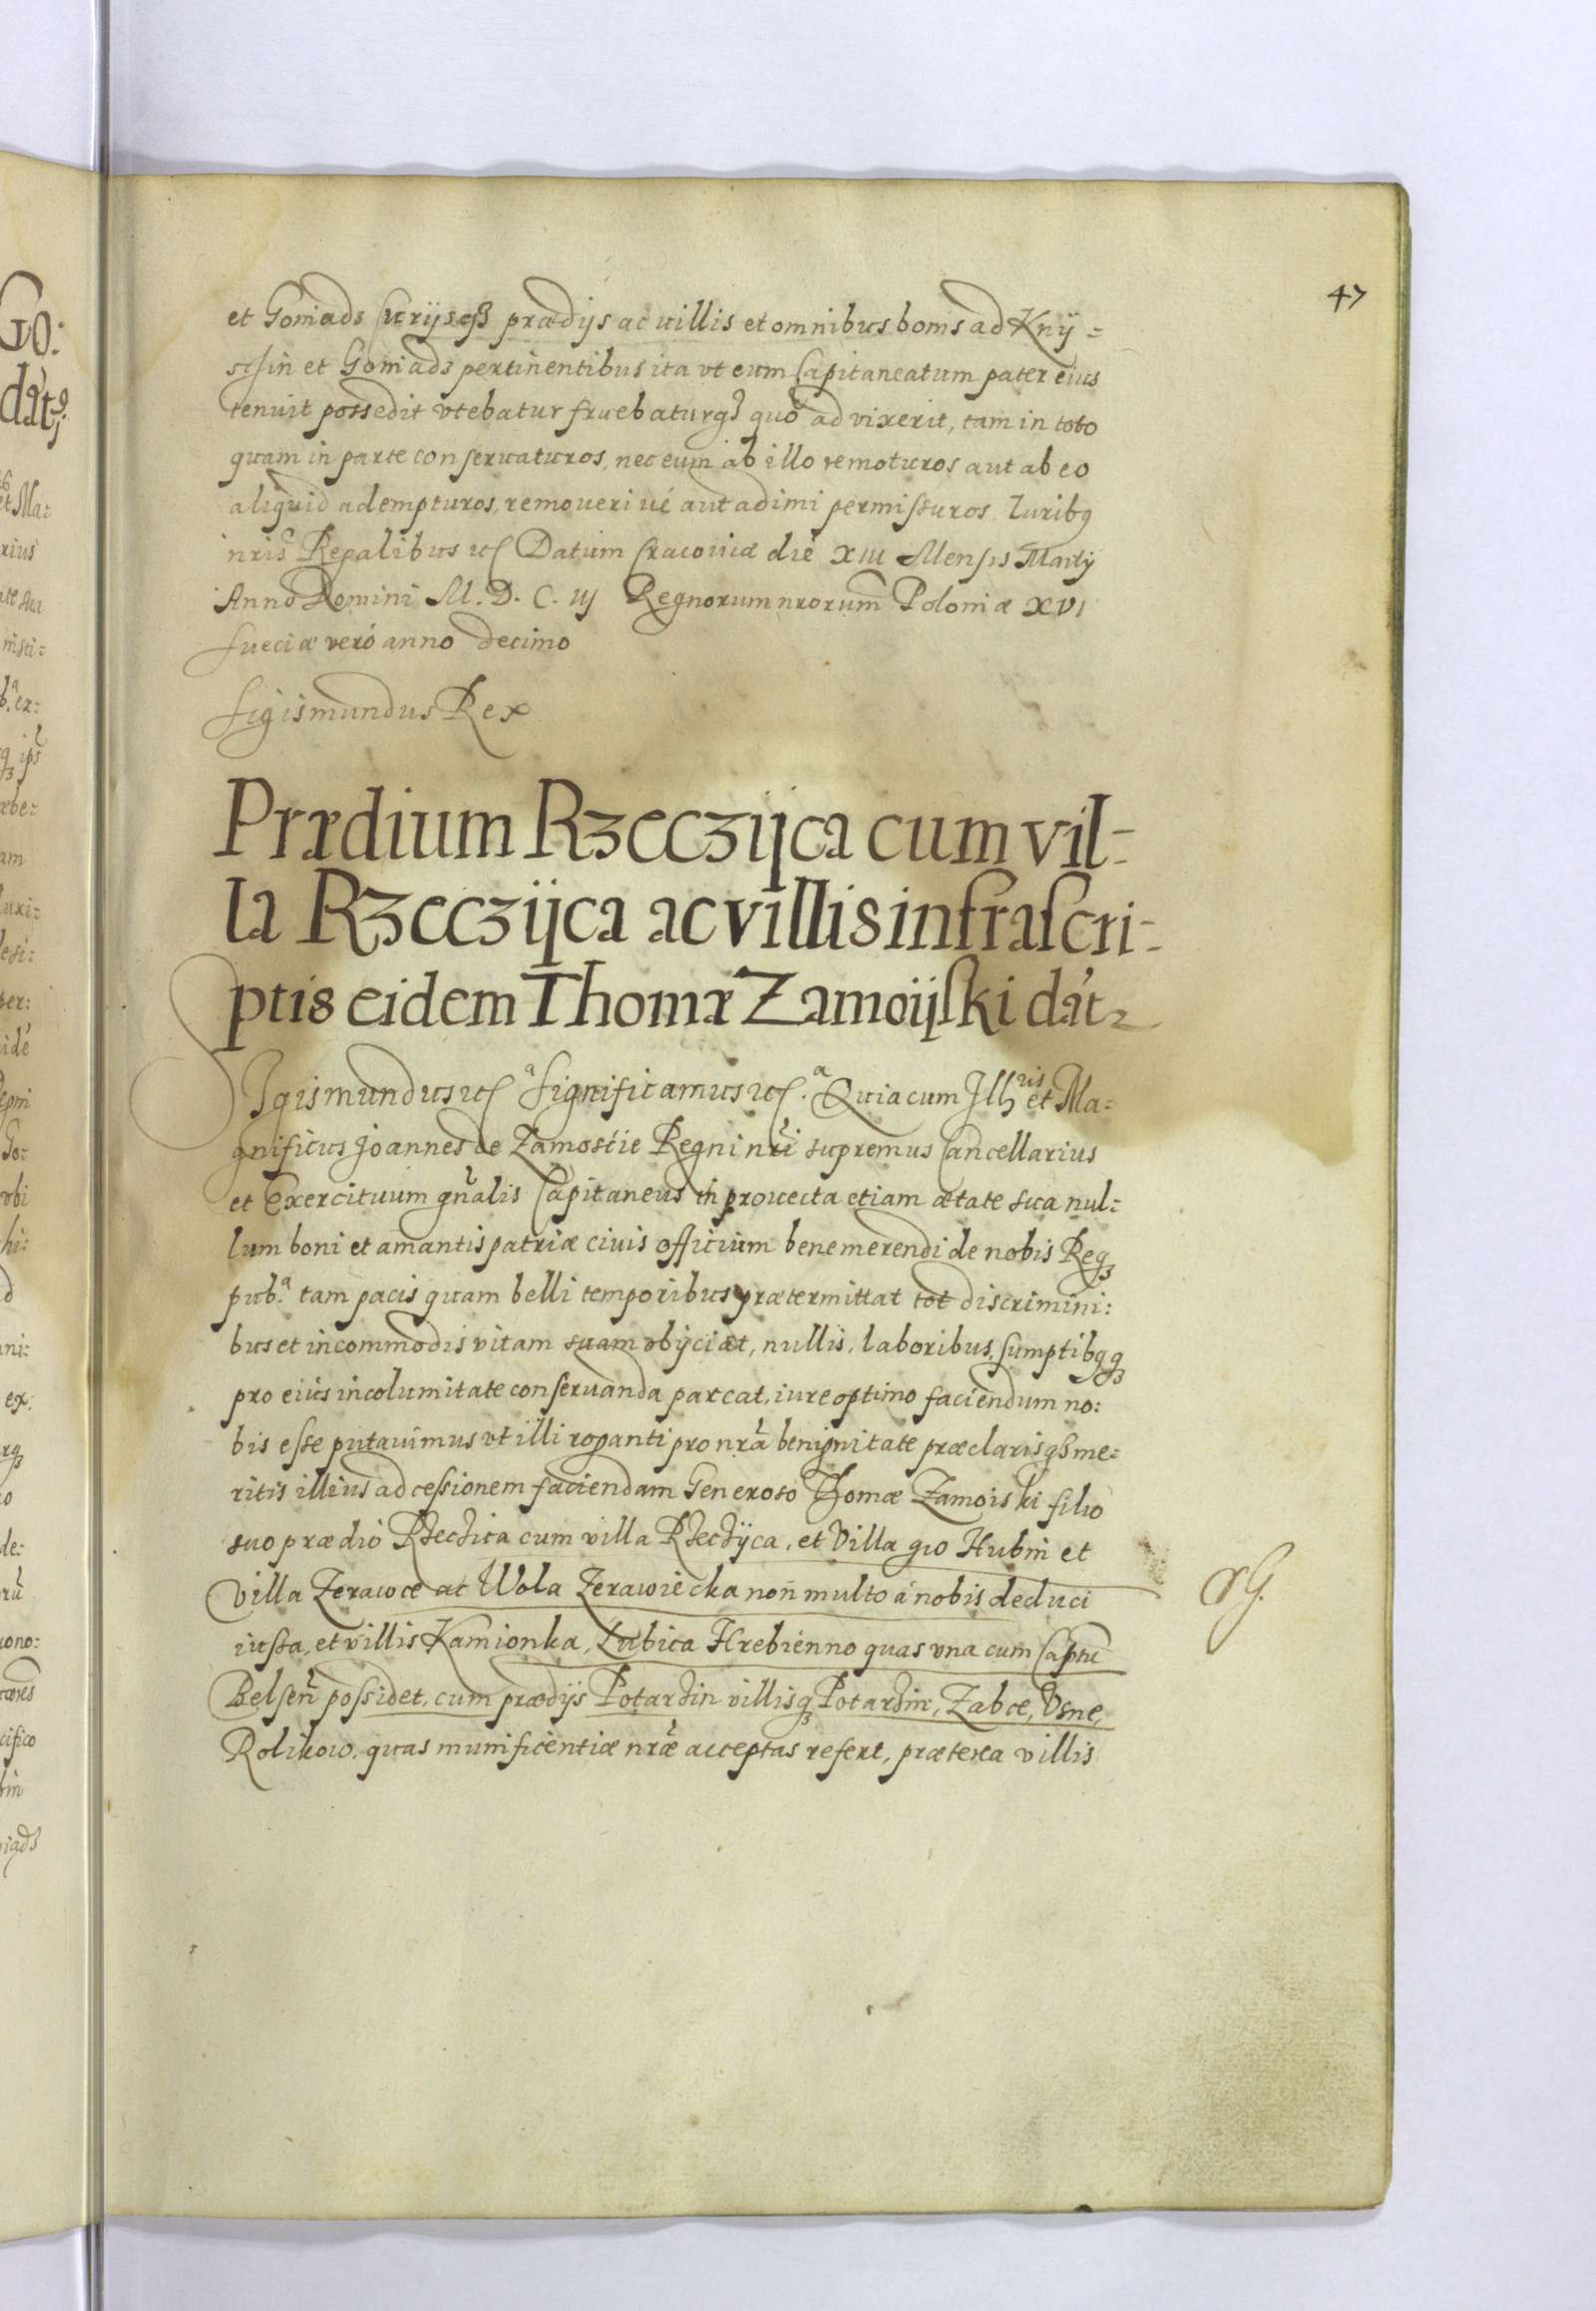 47
et Goniads Curijsqз prædijs ac villis et omnibus bonis ad Knÿ=
schin et Goniads pertinentibus ita vt eum Capitaneatum pater eius
tenuit possedit vtebatur fruebaturqз quo ad vixerit, tam in toto
quam in parte conseruaturos, nec eum ab illo remoturos aut ab eo
aliquid adempturos, remoueri ué aut adimi permissuros Iuribꝰ
nris Regalibus etc Datum Cracouiæ die XIII Mensis Martij
Anno Domini M.D.C.iij Regnorum nrorum Poloniæ XVI
Sueciæ veró anno decimo
Sigismundus Rex
Prædium Rzeczÿca cum vil-
la Rzeczÿca ac villis infrascri-
ptis eidem Thomæ Zamoijski dát
Sigismundus etc Significamus etc. Quia cum Illris et Ma=
gnificus Joannes de Zamoscie Regni nri supremus Cancellarius
et Exercituum gnalis Capitaneus in prouecta etiam ætate sua nul=
lum boni et amantis patriæ ciuis officium benemerendi de nobis Reqз
pub.ª tam pacis quam belli temporibus prætermittat tot discrimini:
bus et incommodis vitam suam obijciat, nullis, laboribus, sumptibꝰqз
pro eius incolumitate conseruanda parcat, iure optimo faciendum no:
bis esse putauimus vt illi roganti pro nrã benignitate præclarisqз me=
ritis illius ad cessionem faciendam Generoso Thomæ Zamoiski filio
suo prædio Rzeczica cum villa Rzeczÿca, et Villa gio Hubin et
Villa Zerawce ac Wola Zerawiecka non multo á nobis deduci
iussa, et villis Kamionka, Lubica Hrebienno quas vna cum Captu
Belsen possidet, cum prædijs Potarzin villisqз Potarzin, Zabce, Vsne,
Rolikow, quas munificentiæ nræ acceptas refert, præterea villis